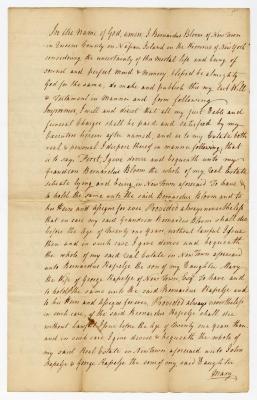 In the Name of God, amen. I Bernardus Bloom of New Town
in Queens County on Nassau Island in the Province of New York
considering the uncertainty of this Mortal life and being of
sound and perfect Mind & Memory blessed be almighty
God for the same, do make and publish this my last Will
& Testament in Manner and form following
Imprimis I will and direct that all my just Debts and
funeral Charges shall be paid and satisfied by my
Executors herein after named, and as to my Estate both
real & personal I dispose thereof in manner following, that
is to say First, I give devise and bequeath unto my
grandson Bernardus Bloom the whole of my Real Estate
situate lying and being in New Town aforesaid To have &
to hold the same unto the said Bernardus Bloom and to
his Heirs and Assigns for ever. Provided always nevertheless
that in case my said Grandson Bernardus Bloom shall die
before the Age of twenty one years, without lawful Issue
then and in such case I give devise and bequeath
the whole of my said Real Estate in New Town aforesaid
unto Bernardus Rapelje the son of my Daughter Mary
the Wife of George Rapelje of New Town To have and
to hold the same unto the said Bernardus Rapelje and
to his Heirs and Assigns for ever, Provided always nevertheless
in such case, if the said Bernardus Rapelje shall die
without lawful Issue before the Age of twenty one years then
and in such case I give devise & bequeath the whole of
my said Real Estate in Newtown aforesaid unto John
Rapelje & George Rapelje the sons of my said Daughter
Mary